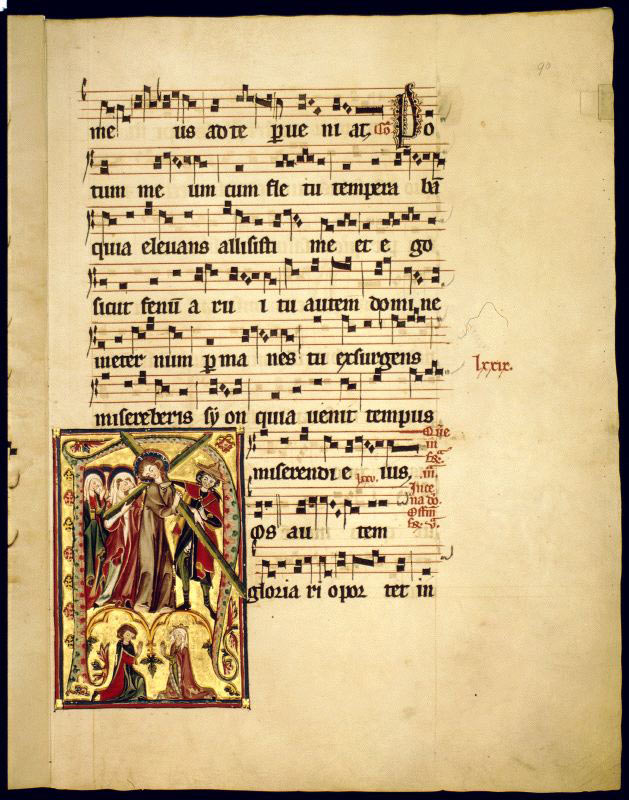 90
me us ad te p̲ue ni at, Co᷒ Do
tum me um cum fle tu tempera bā
quia elevans allisisti me et e go
sicut fenū a ru i tu autem domine
meter num p̲ma nes tu exsurgens
lxxix.
misereberis sy on quia uenit tempus
miserendi e ius,
lxxv.
os au tem
gloria ri opor tet in